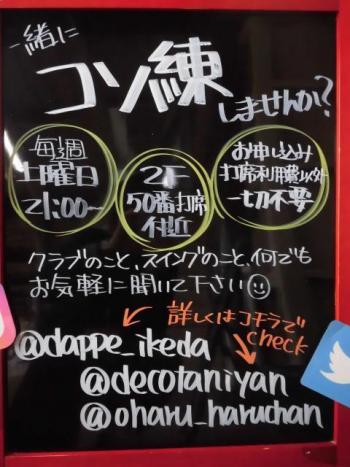 一緒に
コソ練
しませんか?
毎週
土曜日
21:00〜
2F
50番打席
付近
お申し込み
打席利用費以外
一切不要
クラブのこと、スイングのこと、何でも
お気軽に聞いて下さい☺
詳しくはコチラで
check
@dappe_ikeda
@decotaniyan
@oharu_haruchan